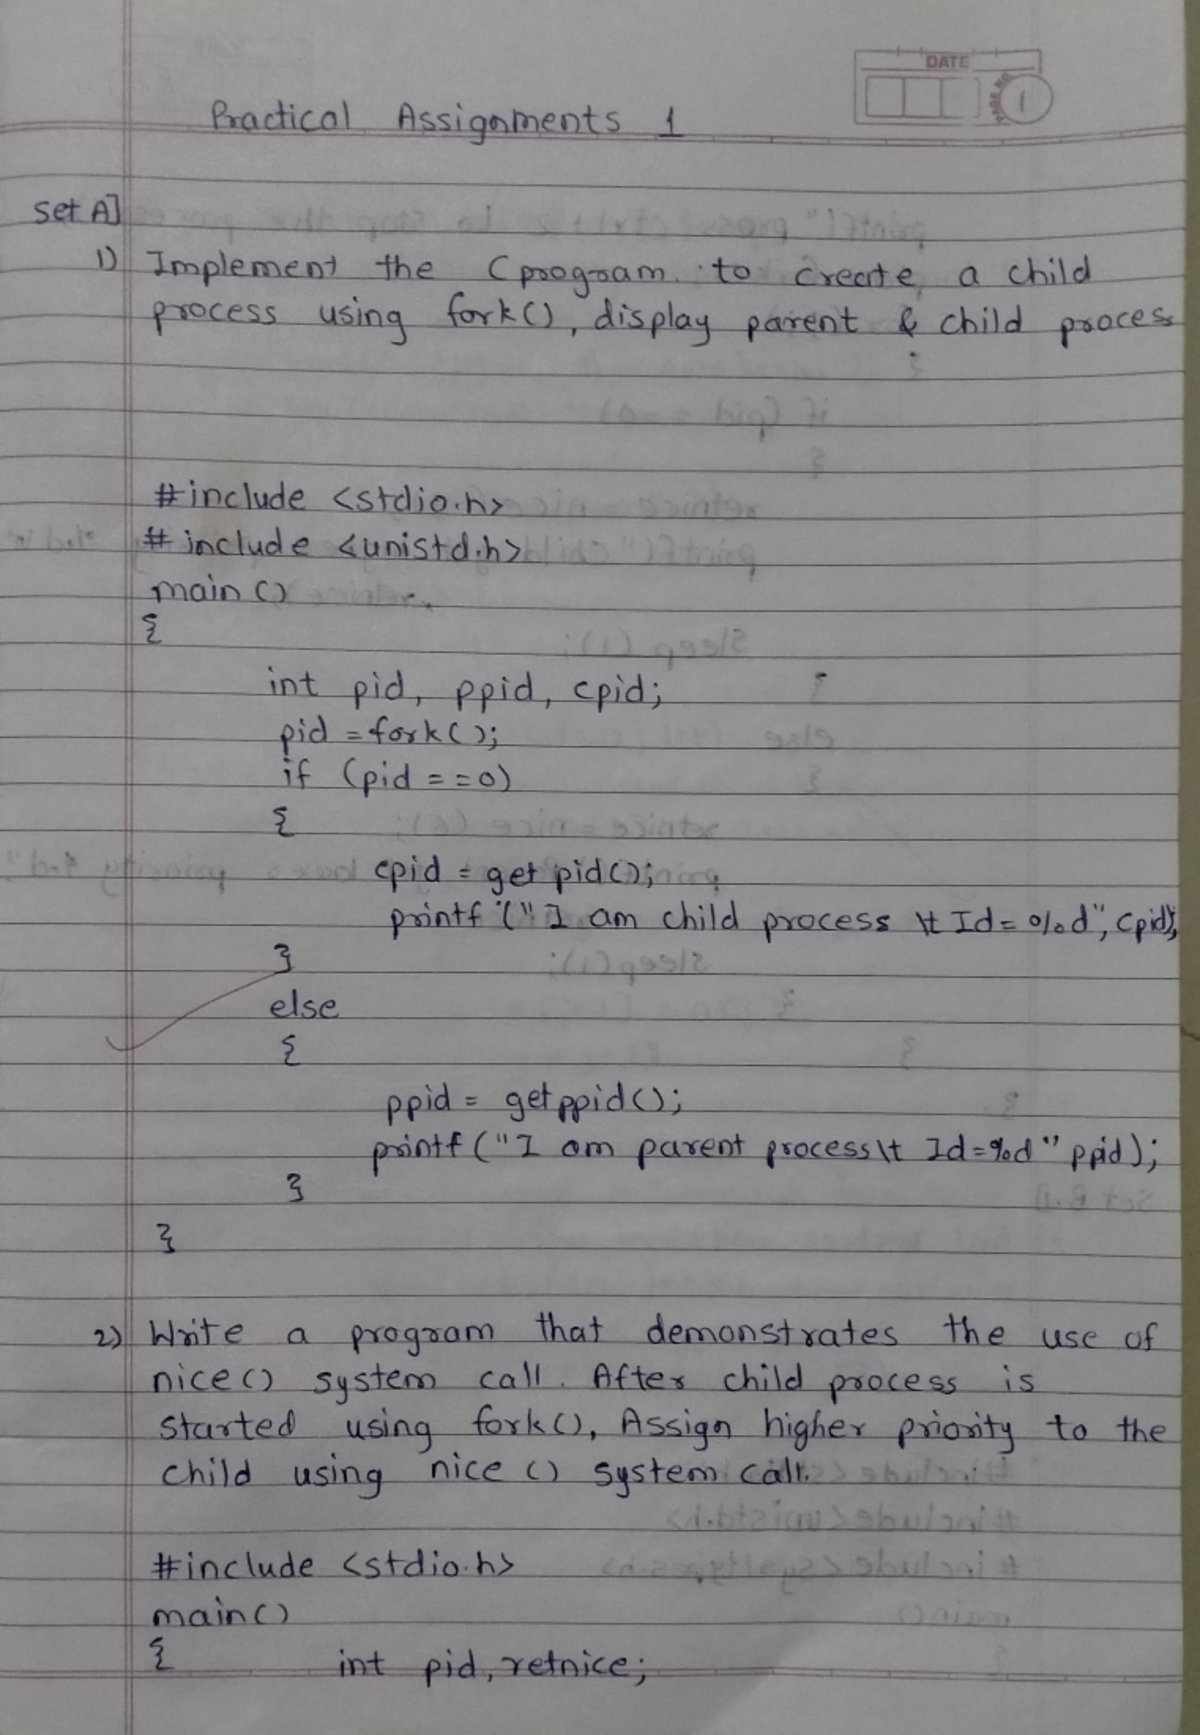 DATE
PAGE NO. 1
Practical Assignments 1
Set A]
1) Implement the C program to create a child
process using fork(), display parent & child process
#include <stdio.h>
# include <unistd.h>
main ()
{
int pid, ppid, cpid;
pid = fork();
if (pid == 0)
{
cpid = get pid();
printf ("I am child process \t Id= %d", cpid);
}
else
{
ppid = getppid();
printf ("I am parent process\t Id=%d" ppid);
}
}
2) Write a program that demonstrates the use of
nice() system call. After child process is
started using fork(), Assign higher priority to the
child using nice () system call.
#include <stdio.h>
main()
{ int pid, retnice;